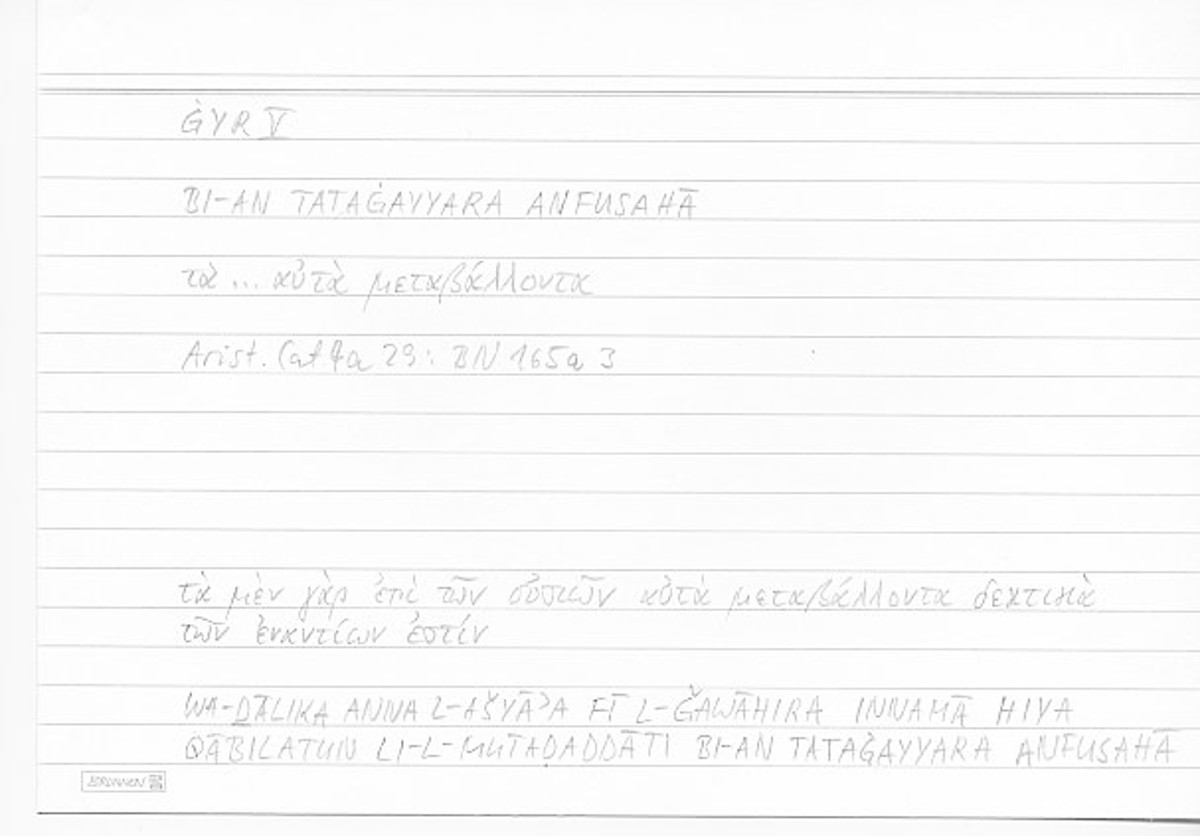 ĠYR V
BI-AN TATAĠAYYARA ANFUSAHĀ
τὰ ... αὐτὰ μεταβάλλοντα
Arist. Cat 4a 29: BN 165a 3
τὰ μὲν γὰρ ἐπὶ τῶν οὐσιῶν αὐτὰ μεταβάλλοντα δεκτικὰ
τῶν ἐναντίων ἐστίν
WA-ḎĀLIKA ANNA L-AŠYĀʾA FĪ L-ǦAWĀHIRA INNAMĀ HIYA
QĀBILATUN LI-L-MUTAḌADDĀTI BI-AN TATAĠAYYARA ANFUSAHĀ
BRUNNEN